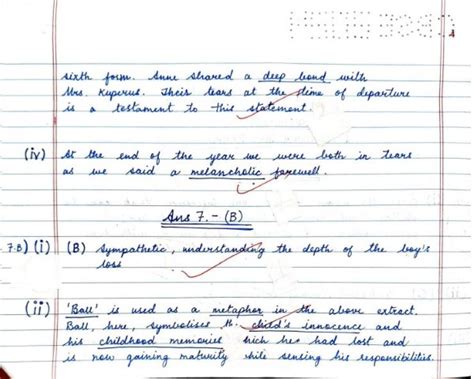 sixth form. Anne shared a deep bond with
Mrs. Kuperus. Their tears at the time of departure
is a testament to this statement.
(iv) At the end of the year we were both in tears
as we said a melancholic farewell.
Ans 7. - (B)
7.B) (i) (B) Sympathetic, understanding the depth of the boy's
loss
(ii) 'Ball' is used as a metaphor in the above extract.
Ball, here, symbolises the child's innocence and
his childhood memories hich he had lost and
is now gaining maturity hile sensing his responsibilities.